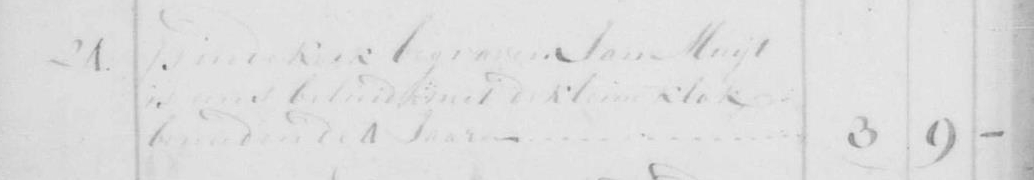 21. is in de Kerk begraven Jan Muijt
is eens beluid met de kleine klok
beneden de 1 Jaaren 3 9 -